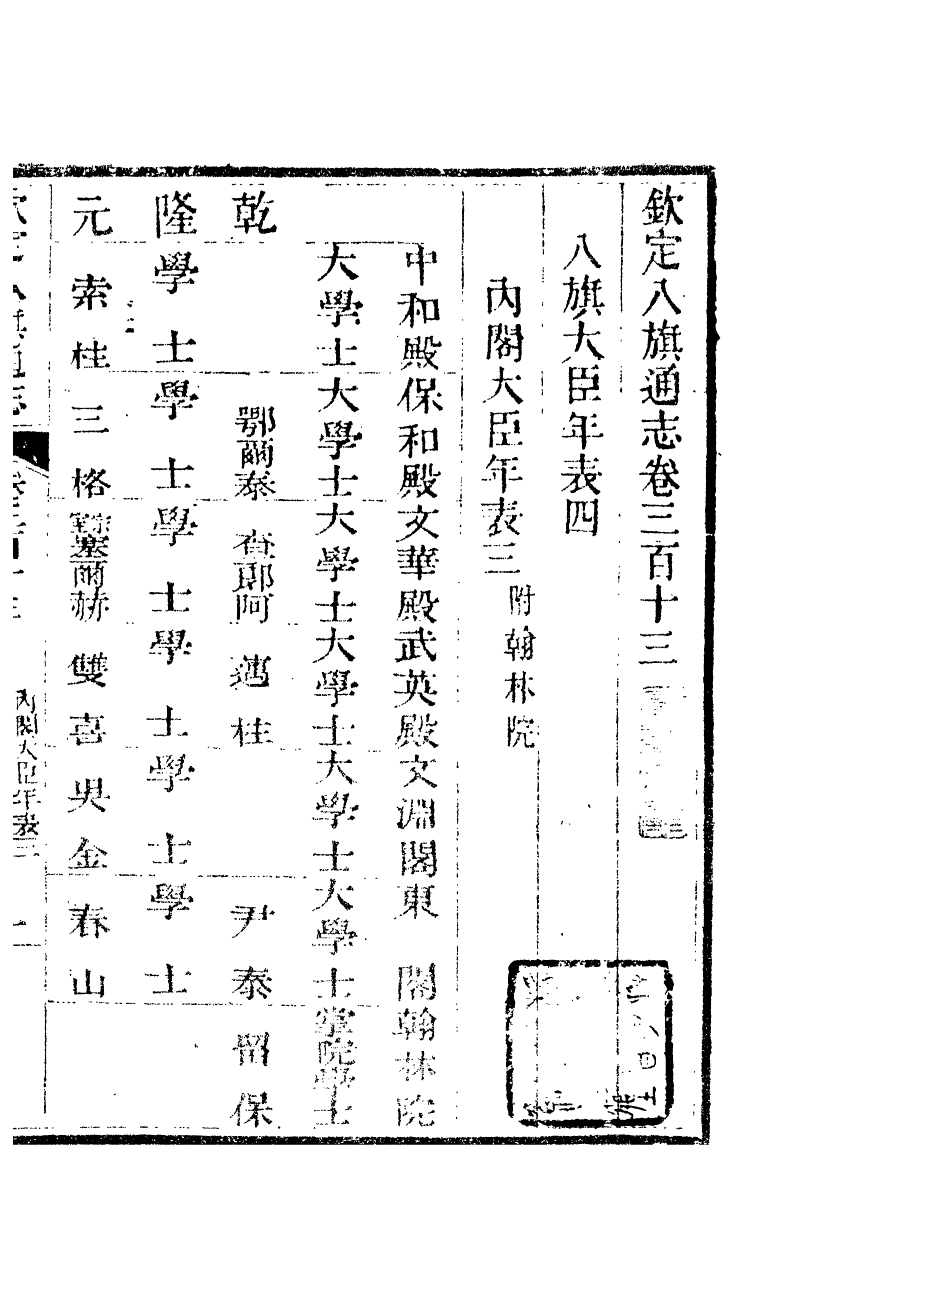 欽定八旗通志卷三百十三
八旗大臣年表四
內閣大臣年表三 附翰林院
中和殿保和殿文華殿武英殿文淵閣東閣翰林院
大學士大學士大學士大學士大學士大學士掌院學士
乾 鄂爾泰 查郎阿 邁柱 尹泰 留保
隆 學士 學士 學士 學士 學士 學士
元 索柱 三格 宗室塞爾赫 雙喜 吳金 春山
內閣大臣年表三